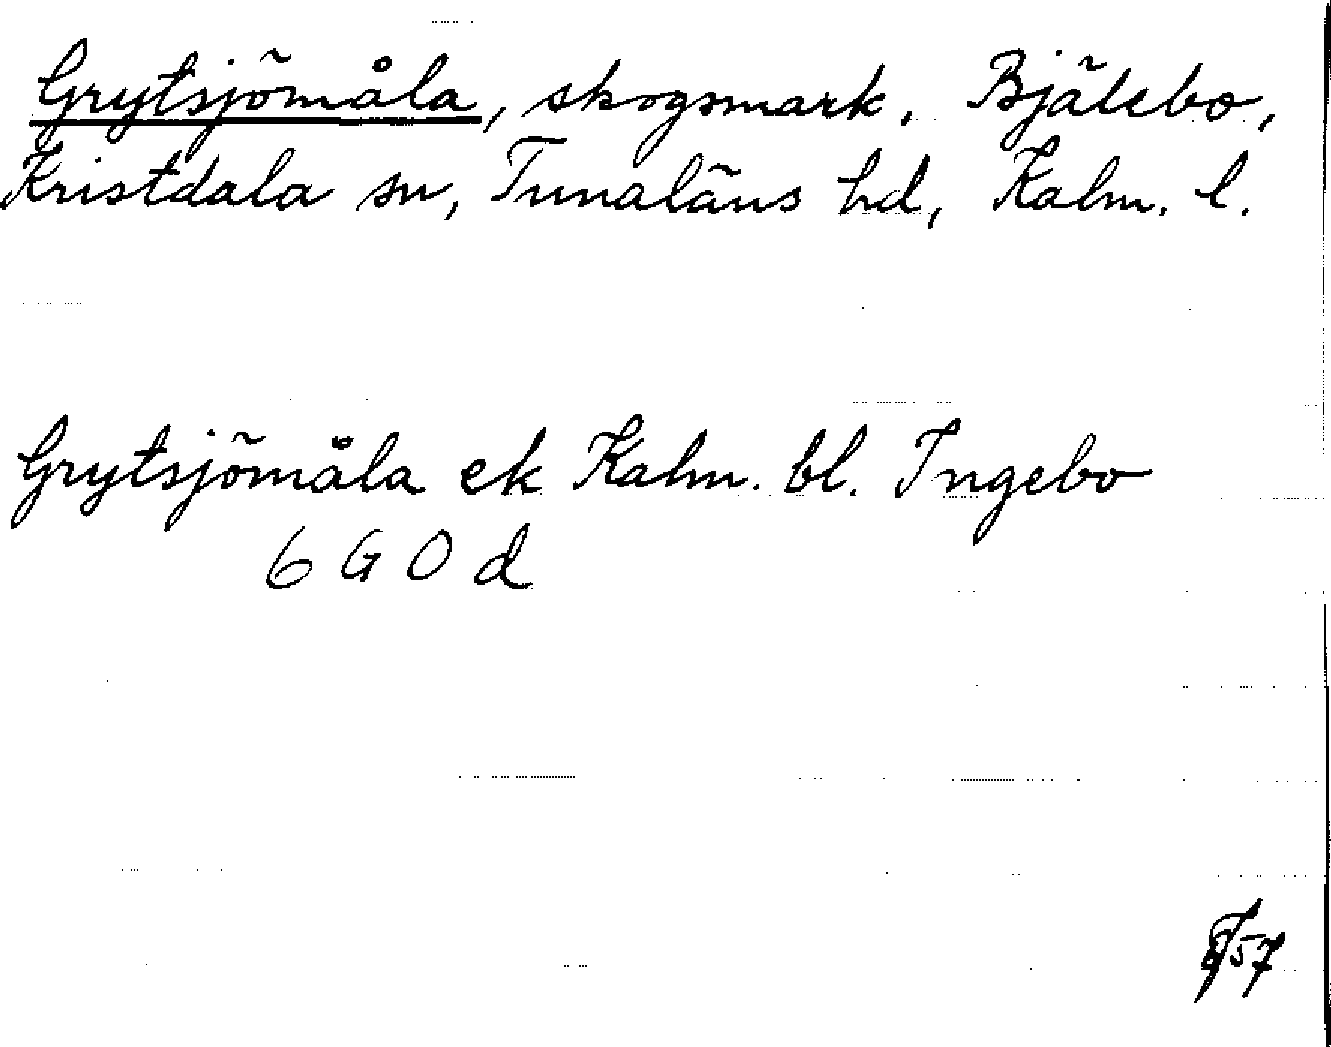 Grytsjömåla, skogsmark, Bjälebo,
Kristdala sn, Tunaläns hd, Kalm. l.
Grytsjömåla ek Kalm. bl. Ingebo
6 G O d
57